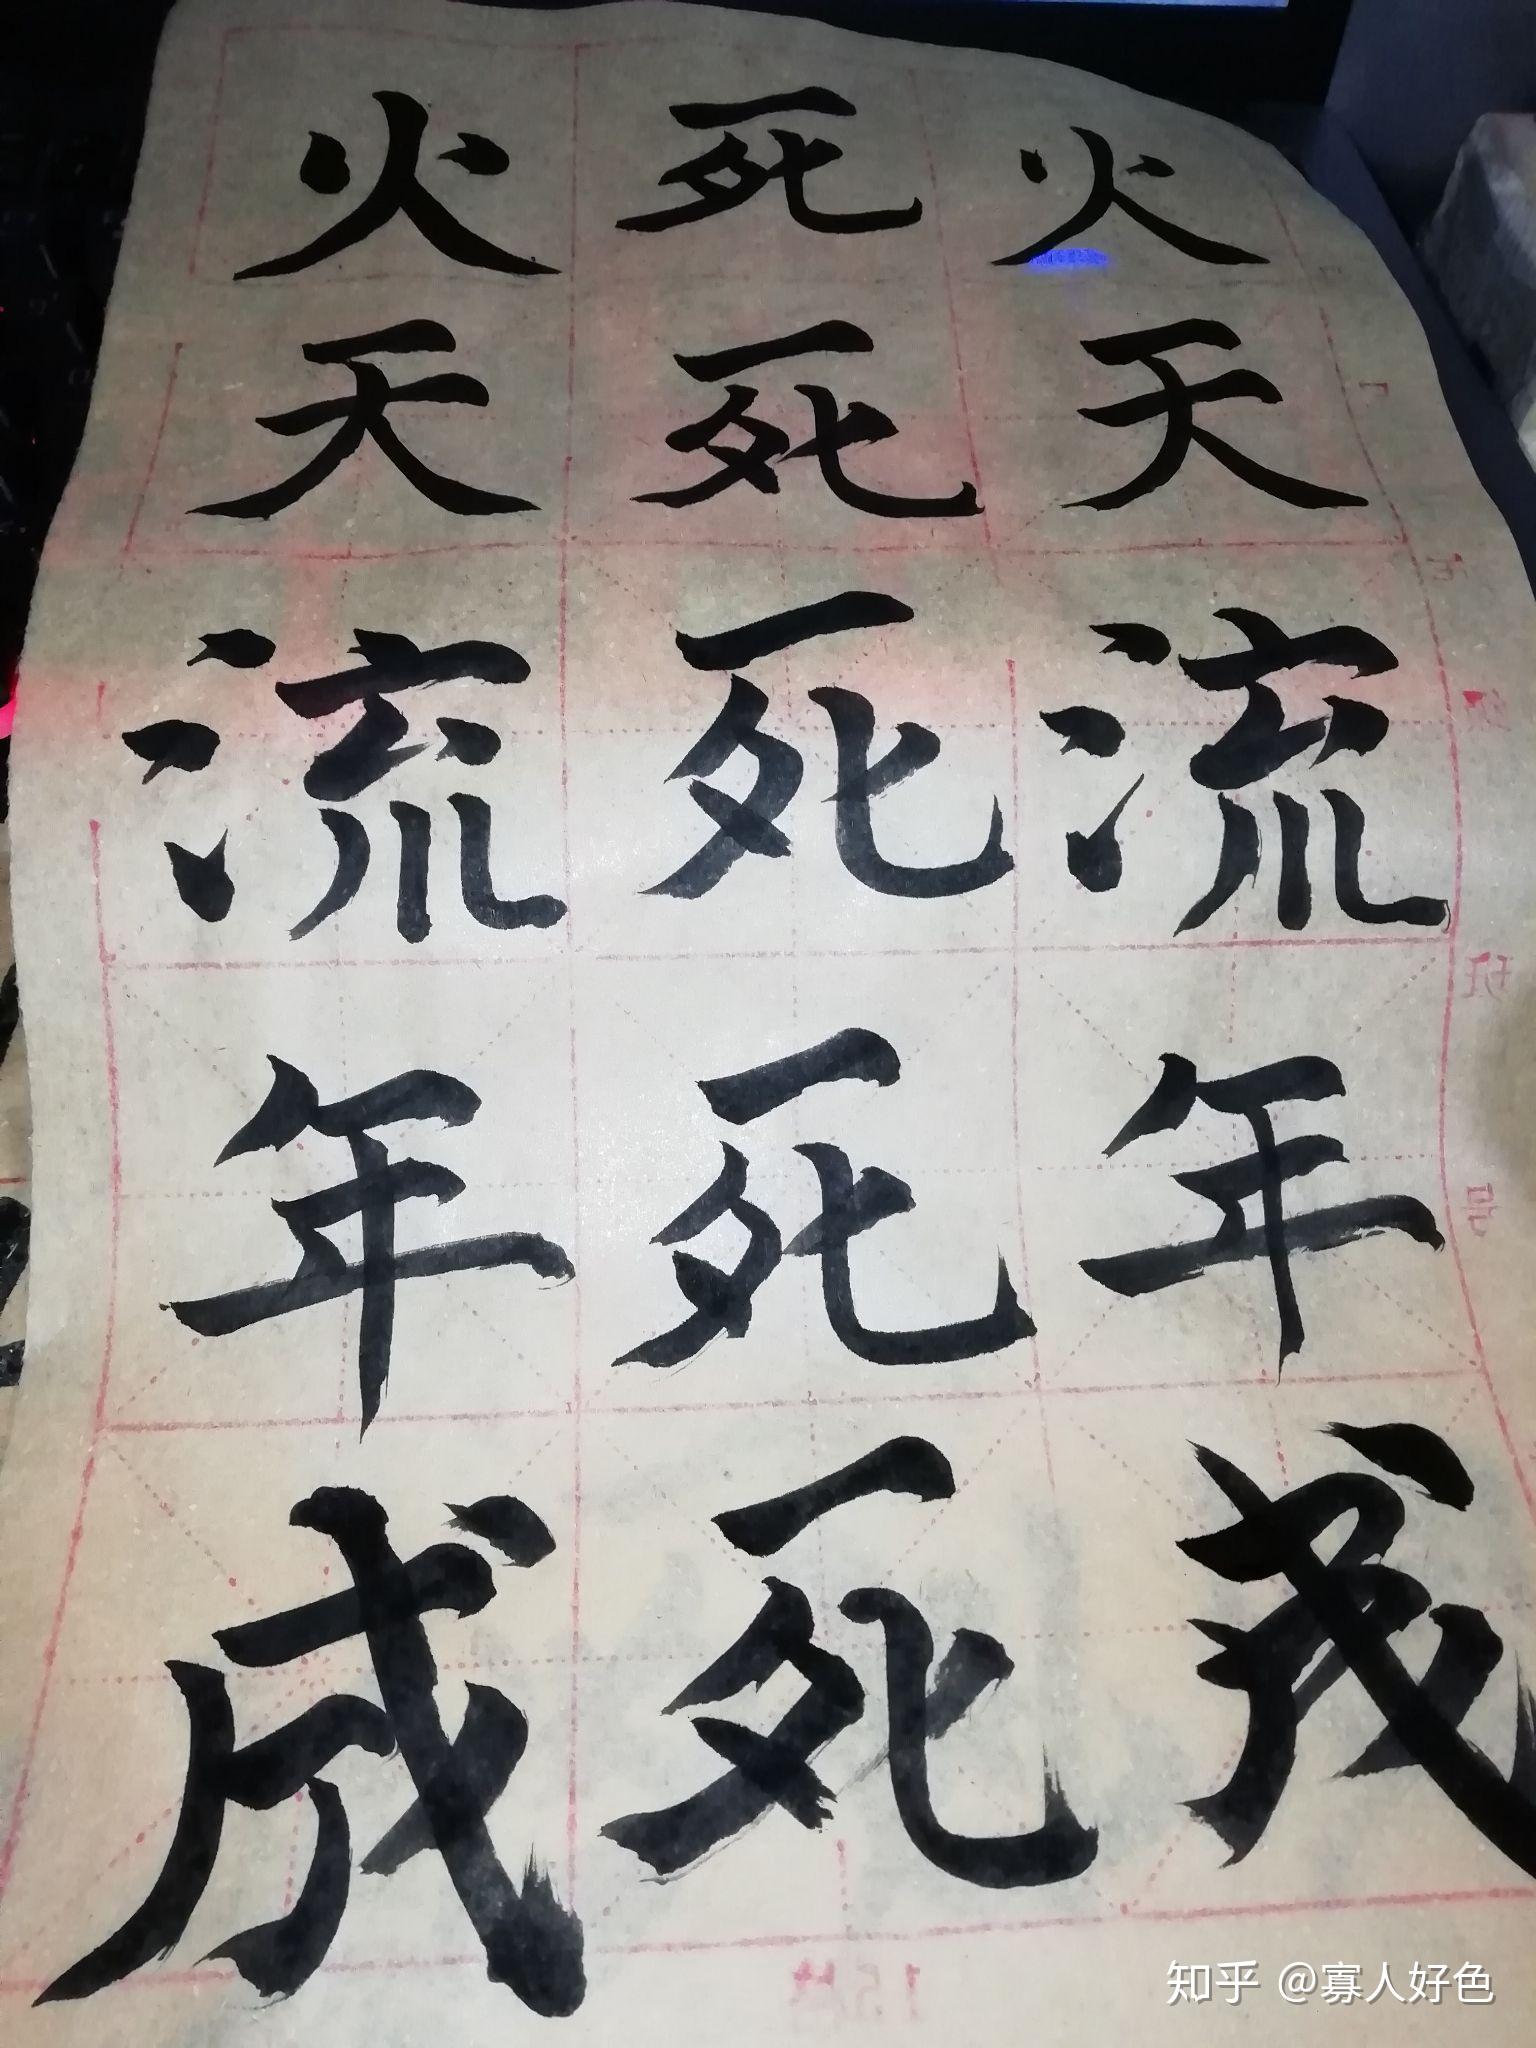 火 死 火
天 死 天
流 死 流
年 死 年
成 死
班
号
知乎 @寡人好色